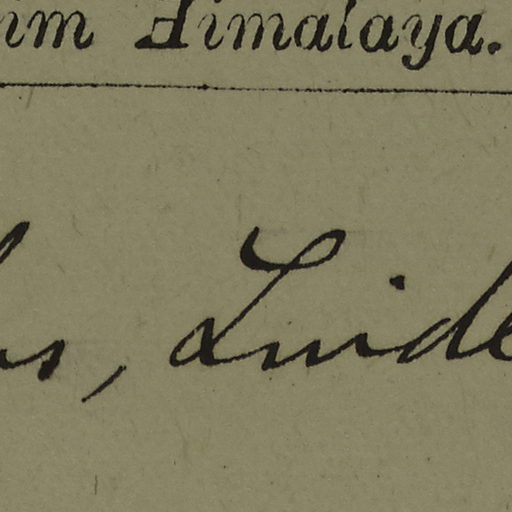 im Himalaya.
s, Linde